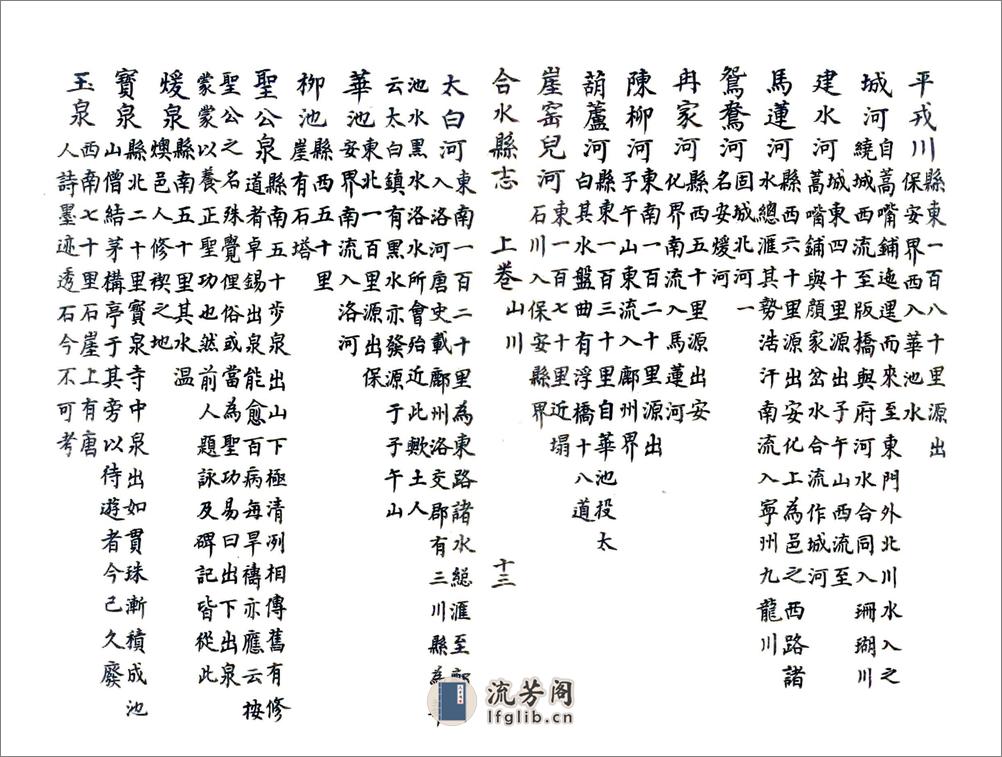 平戎川 縣東一百八十里源出
保安界西入華池水
城河 自蒿嘴鋪迤邐而來至東門外北川水入之
繞城東西流至版橋與府河水合同入珊瑚川
建水河 城東四十里源出子午山西流至
蒿嘴鋪與顏家岔水合流作城河
馬蓮河 縣西六十里源出安化上為邑之西路諸
水總滙其勢浩汗南流入寧州九龍川
鴛鴦河 固城北河一
名安煖河
冉家河 縣西五十里源出安
化界南流入馬蓮河
陳柳河 東南一百二十里源出
子午山東流入鄜州界
葫蘆河 縣東一百三十里自華池投太
白其水盤曲有浮橋十八道
崖窑兒河 東一百七十里近塌
石川入保安縣界
合水縣志 上卷 山川 十三
太白河 東南一百二十里為東路諸水總滙至
入洛河唐史載鄜州洛交郡有三川縣為
池水黑水洛水所會殆近此歟土人
云太白鎮有黑水亦發源于子午山
華池 東北一百里源出保
安界南流入洛河
柳池 縣西五十里
崖有石塔
聖公泉 縣南五十步泉出山下極清冽相傳舊有修
道者卓錫出泉能愈百病每旱禱亦應云按
聖公之名殊覺俚俗或當為聖功易曰出下出泉
蒙蒙以養正聖功也然前人題詠及碑記皆從此
煖泉 縣南五十里其水温
燠邑人修禊之地
寶泉 縣北二十里寶泉寺中泉出如貫珠漸積成池
山僧結茅構亭于其旁以待遊者今已久廢
玉泉 西南七十里石崖上有唐
人詩墨迹透石今不可考
流芳阁
lfglib.cn